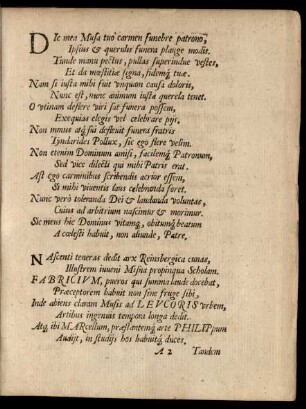 DIc mea Musa tuo carmen funebre patrono,
Ipsius & querulis funera plange modis.
Tunde manu pectus, pullas superindue vestes,
Et da mœstitiæ signa, fidemq́ tuæ.
Nam si iusta mihi fuit vnquam causa doloris,
Nunc est, nunc animum iusta querela tenet.
O vtinam deflere viri sat funera possem,
Exequias elegis vel celebrare pijs.
Non minus atq́ sui defleuit funera fratris
Tyndarides Pollux, sic ego flere velim.
Non etenim Dominum amisi, facilemq́ Patronum,
Sed vice dilecti qui mihi Patris erat.
Ast ego carminibus scribendis acrior essem,
Si mihi viuentis laus celebranda foret.
Nunc verò toleranda Dei & laudanda voluntas,
Cuius ad arbitrium nascimur & morimur.
Sic meus hic Dominus vitamq́ obitumq́ beatum
A cœlesti habuit, non aliunde, Patre.
NAscenti teneras dedit arx Reinsbergica cunas,
Illustrem iuueni Misna propinqua Scholam.
FABRICIVM, pueros qui summa laude docebat,
Præceptorem habuit non sine fruge sibi,
Inde abiens claram Musis ad LEVCORIS vrbem,
Artibus ingenuis tempora longa dedit.
Atq́ ibi MARcellum, præstantemq́ arte PHILIPpum
Audijt, in studijs hos habuitq́ duces.
A 2 Tandem